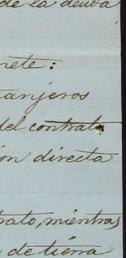 de la deuda
nete:
tanjeros
del contrato
ion directa
rato, mientras
de tierra